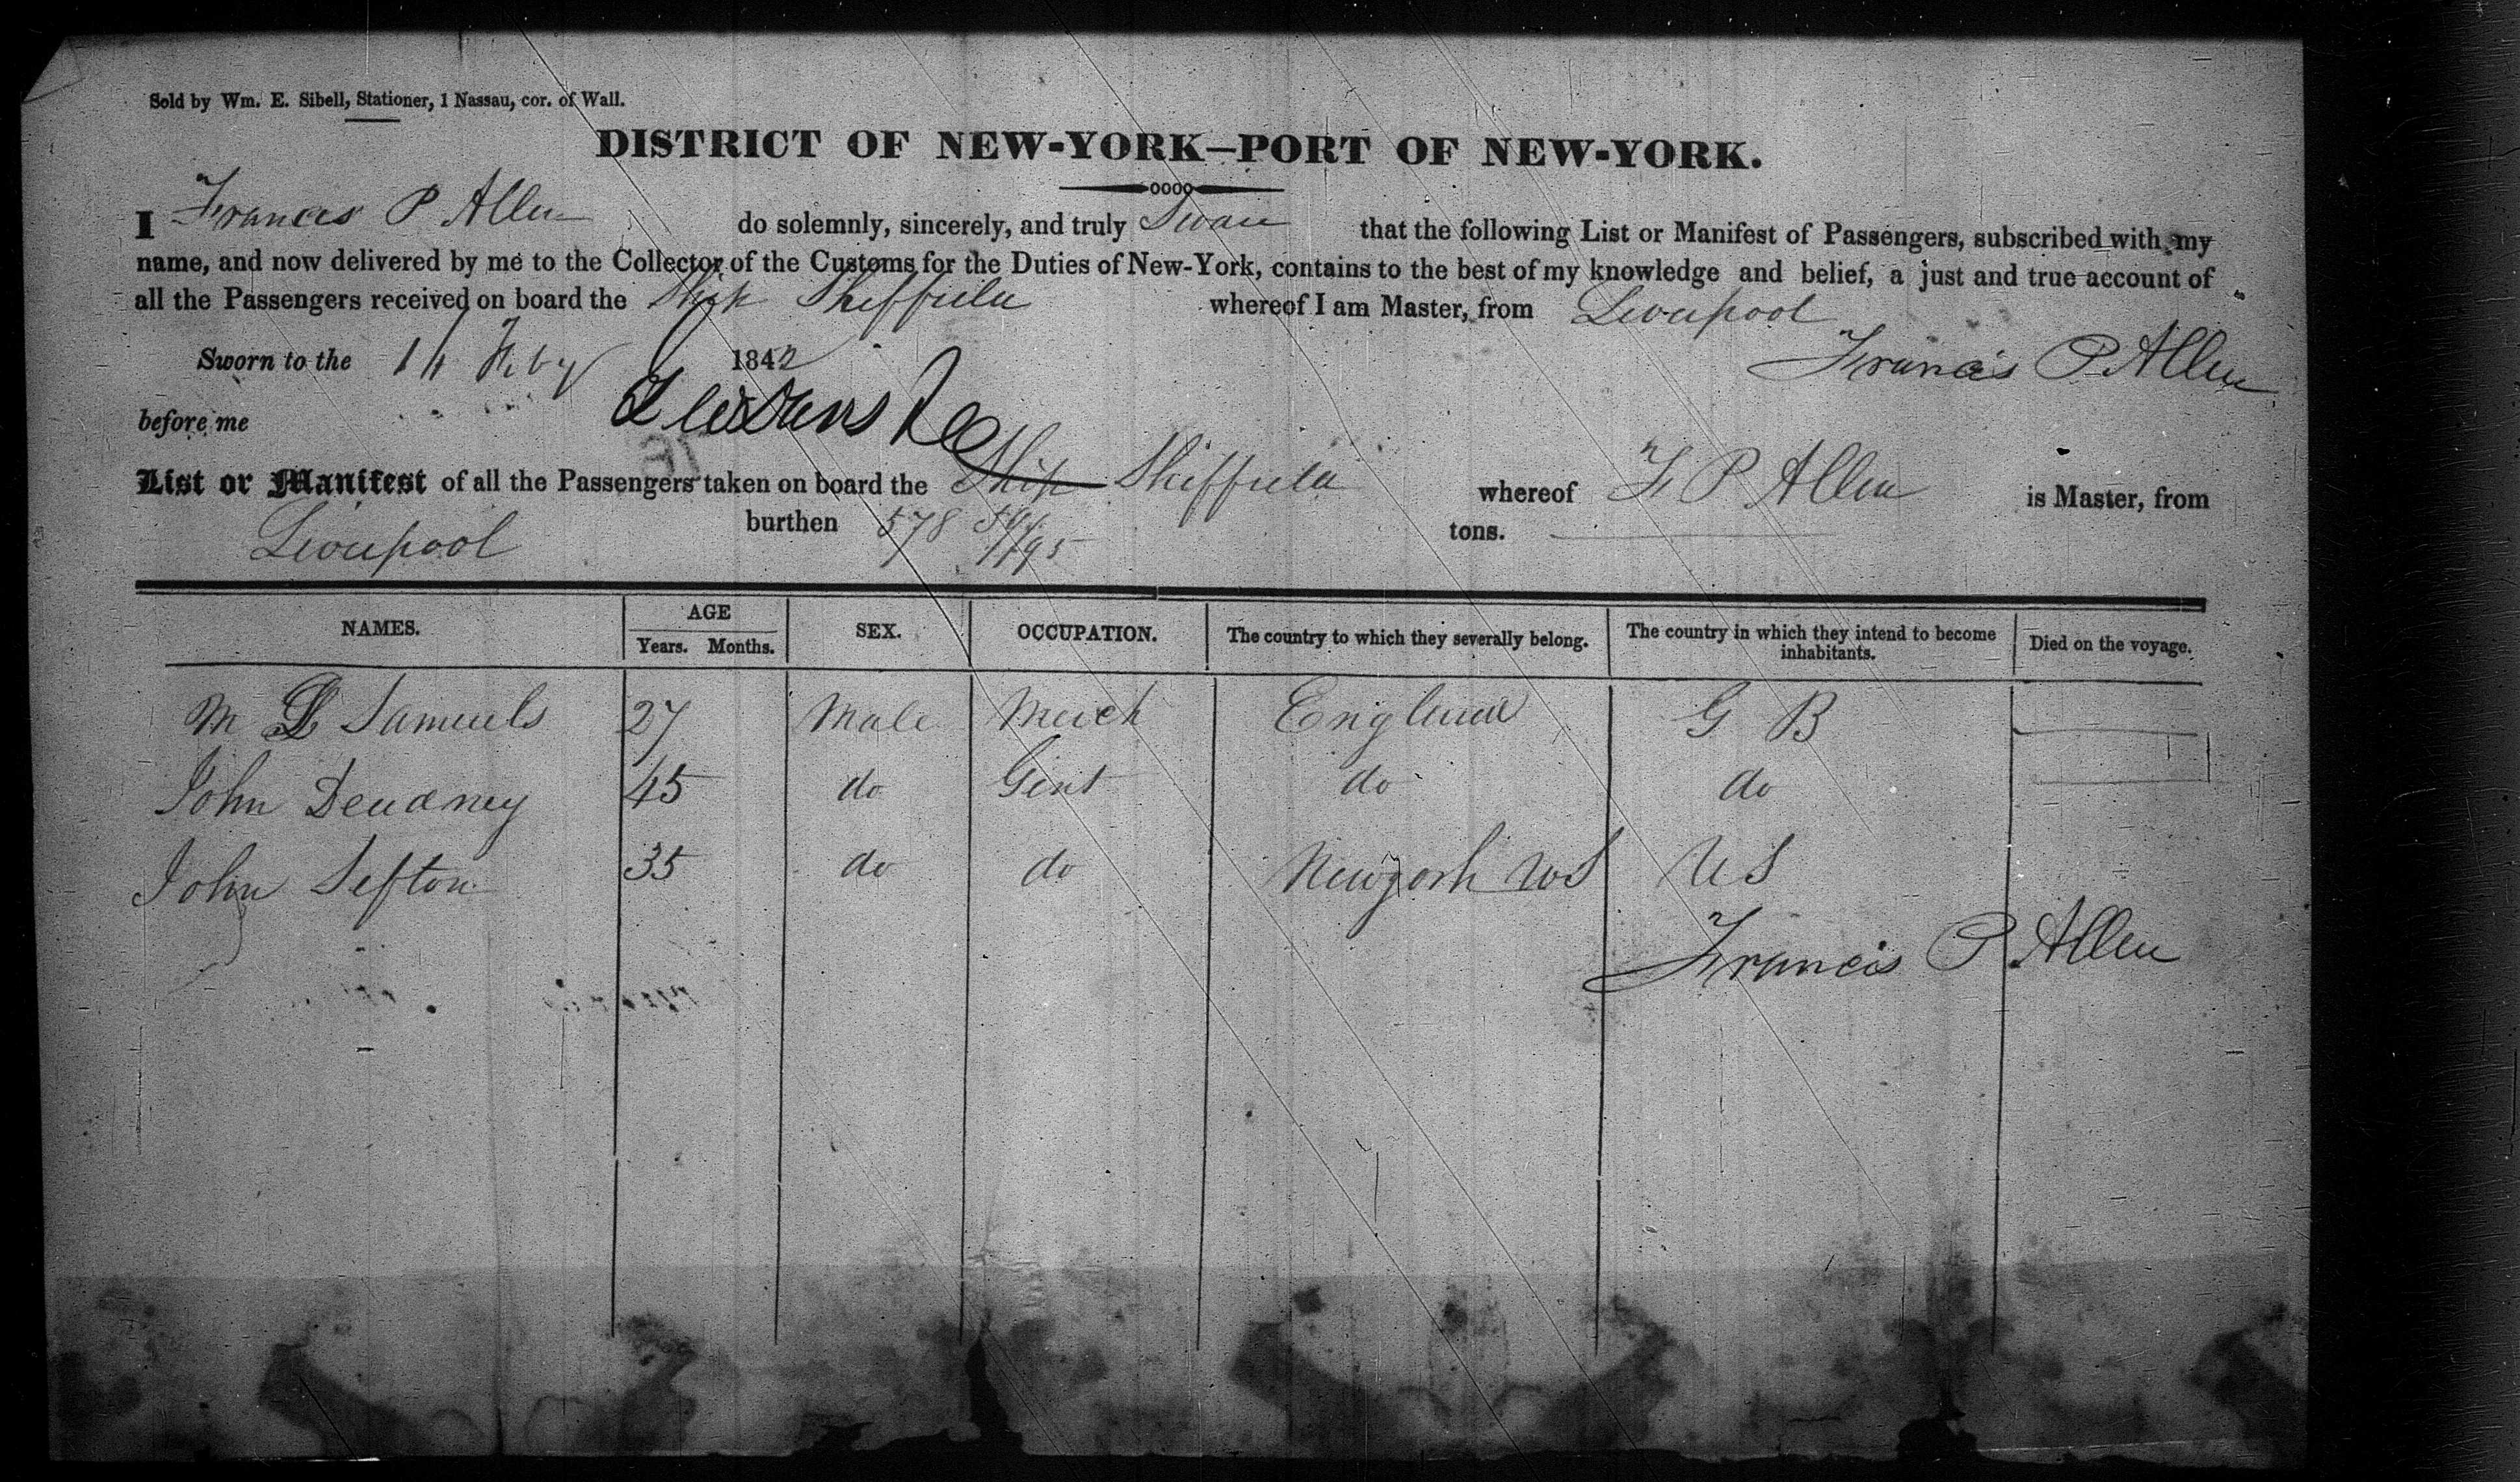 Sold by Wm. E. Sibell, Stationer, 1 Nassau, cor. of Wall.
DISTRICT OF NEW-YORK—PORT OF NEW-YORK.
I Francis P Allen do solemnly, sincerely, and truly Swear that the following List or Manifest of Passengers, subscribed with my
name, and now delivered by me to the Collector of the Customs for the Duties of New-York, contains to the best of my knowledge and belief, a just and true account of
all the Passengers received on board the Ship Sheffield whereof I am Master, from Liverpool
Sworn to the Feby 1842 Francis P Allen
before me
List or Manifest of all the Passengers taken on board the Ship Sheffield whereof F P Allen is Master, from
Liverpool burthen 578 /95 tons.
NAMES. AGE Years. Months. SEX. OCCUPATION. The country to which they severally belong. The country in which they intend to become inhabitants. Died on the voyage.
M L Samuels 27 Male Merch England G B
John Deudney 45 do Gent do do
John Sefton 35 do do Newyork US US
Francis P Allen